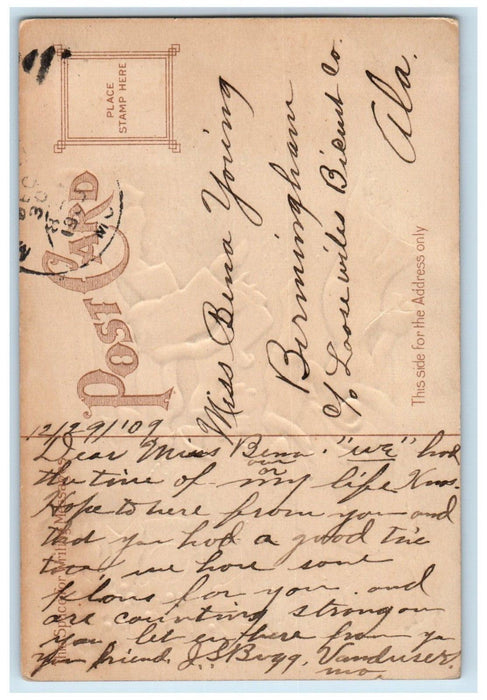 PLACE
STAMP HERE
POST CARD
This side for the Address only
Miss Bena Young
Birmingham
c/o Loose wiles Biscuit Co.
Ala.
12/29/'09
Dear Miss Bena. "we" had
our
the time of my life Xmas.
or
Hope to here from you and
that you had a good time
too we have some
plans for you. and
are counting strong on
you let us here from yo
your friend, J.S. Bugg, Vanduser,
mo.